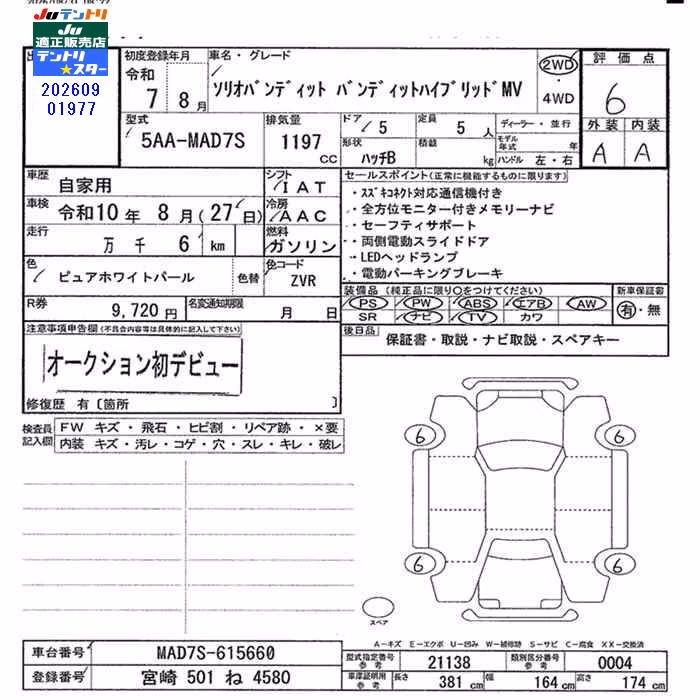 Juテントリ
JU
適正販売店
テントリ
★スター
202609
01977
初度登録年月
車名・グレード
令和
7 8月
ソリオバンディット バンディットハイブリッドMV
2WD
・
4WD
評価点
6
外装 内装
A A
型式
5AA-MAD7S
排気量
1197
cc
ドア
5
定員
5人
形状
ハッチB
積載
kg
ディーラー・並行
モデル年式 年
ハンドル 左・右
車歴
自家用
シフト
IAT
車検
令和10年 8月(27日)
冷房
AAC
走行
万 千 6 km
燃料
ガソリン
色
ピュアホワイトパール
色替
色コード
ZVR
R券
9,720円
名変通知期限
月 日
セールスポイント(正常に機能するものに限ります)
・スズキコネクト対応通信機付き
・全方位モニター付きメモリーナビ
・セーフティサポート
・両側電動スライドドア
・LEDヘッドランプ
・電動パーキングブレーキ
装備品(純正品に限り○をつけてください)
新車保証書
PS PW ABS エアB AW
SR ナビ TV カワ
有・無
後日品
保証書・取説・ナビ取説・スペアキー
注意事項申告欄(不具合内容等は具体的に記入して下さい)
オークション初デビュー
修復歴 有〔箇所 〕
検査員
記入欄
FW キズ・飛石・ヒビ割・リペア跡・×要
内装 キズ・汚レ・コゲ・穴・スレ・キレ・破レ
6 6
6 6
スペア
A-キズ E-エクボ U-凹み W-補修跡 S-サビ C-腐食 XX-交換済
車台番号
MAD7S-615660
登録番号
宮崎 501 ね 4580
型式指定番号
参考
21138
類別区分番号
参考
0004
車庫証明用
参考
長さ
381 cm
幅
164 cm
高さ
174 cm